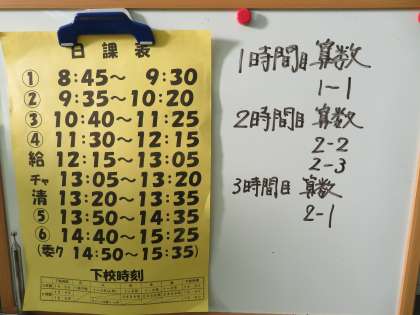 日課表
① 8:45～ 9:30
② 9:35～10:20
③ 10:40～11:25
④ 11:30～12:15
給 12:15～13:05
チャ 13:05～13:20
清 13:20～13:35
⑤ 13:50～14:35
⑥ 14:40～15:25
(委ク 14:50～15:35)
下校時刻
1時間目 算数
1-1
2時間目 算数
2-2
2-3
3時間目 算数
2-1